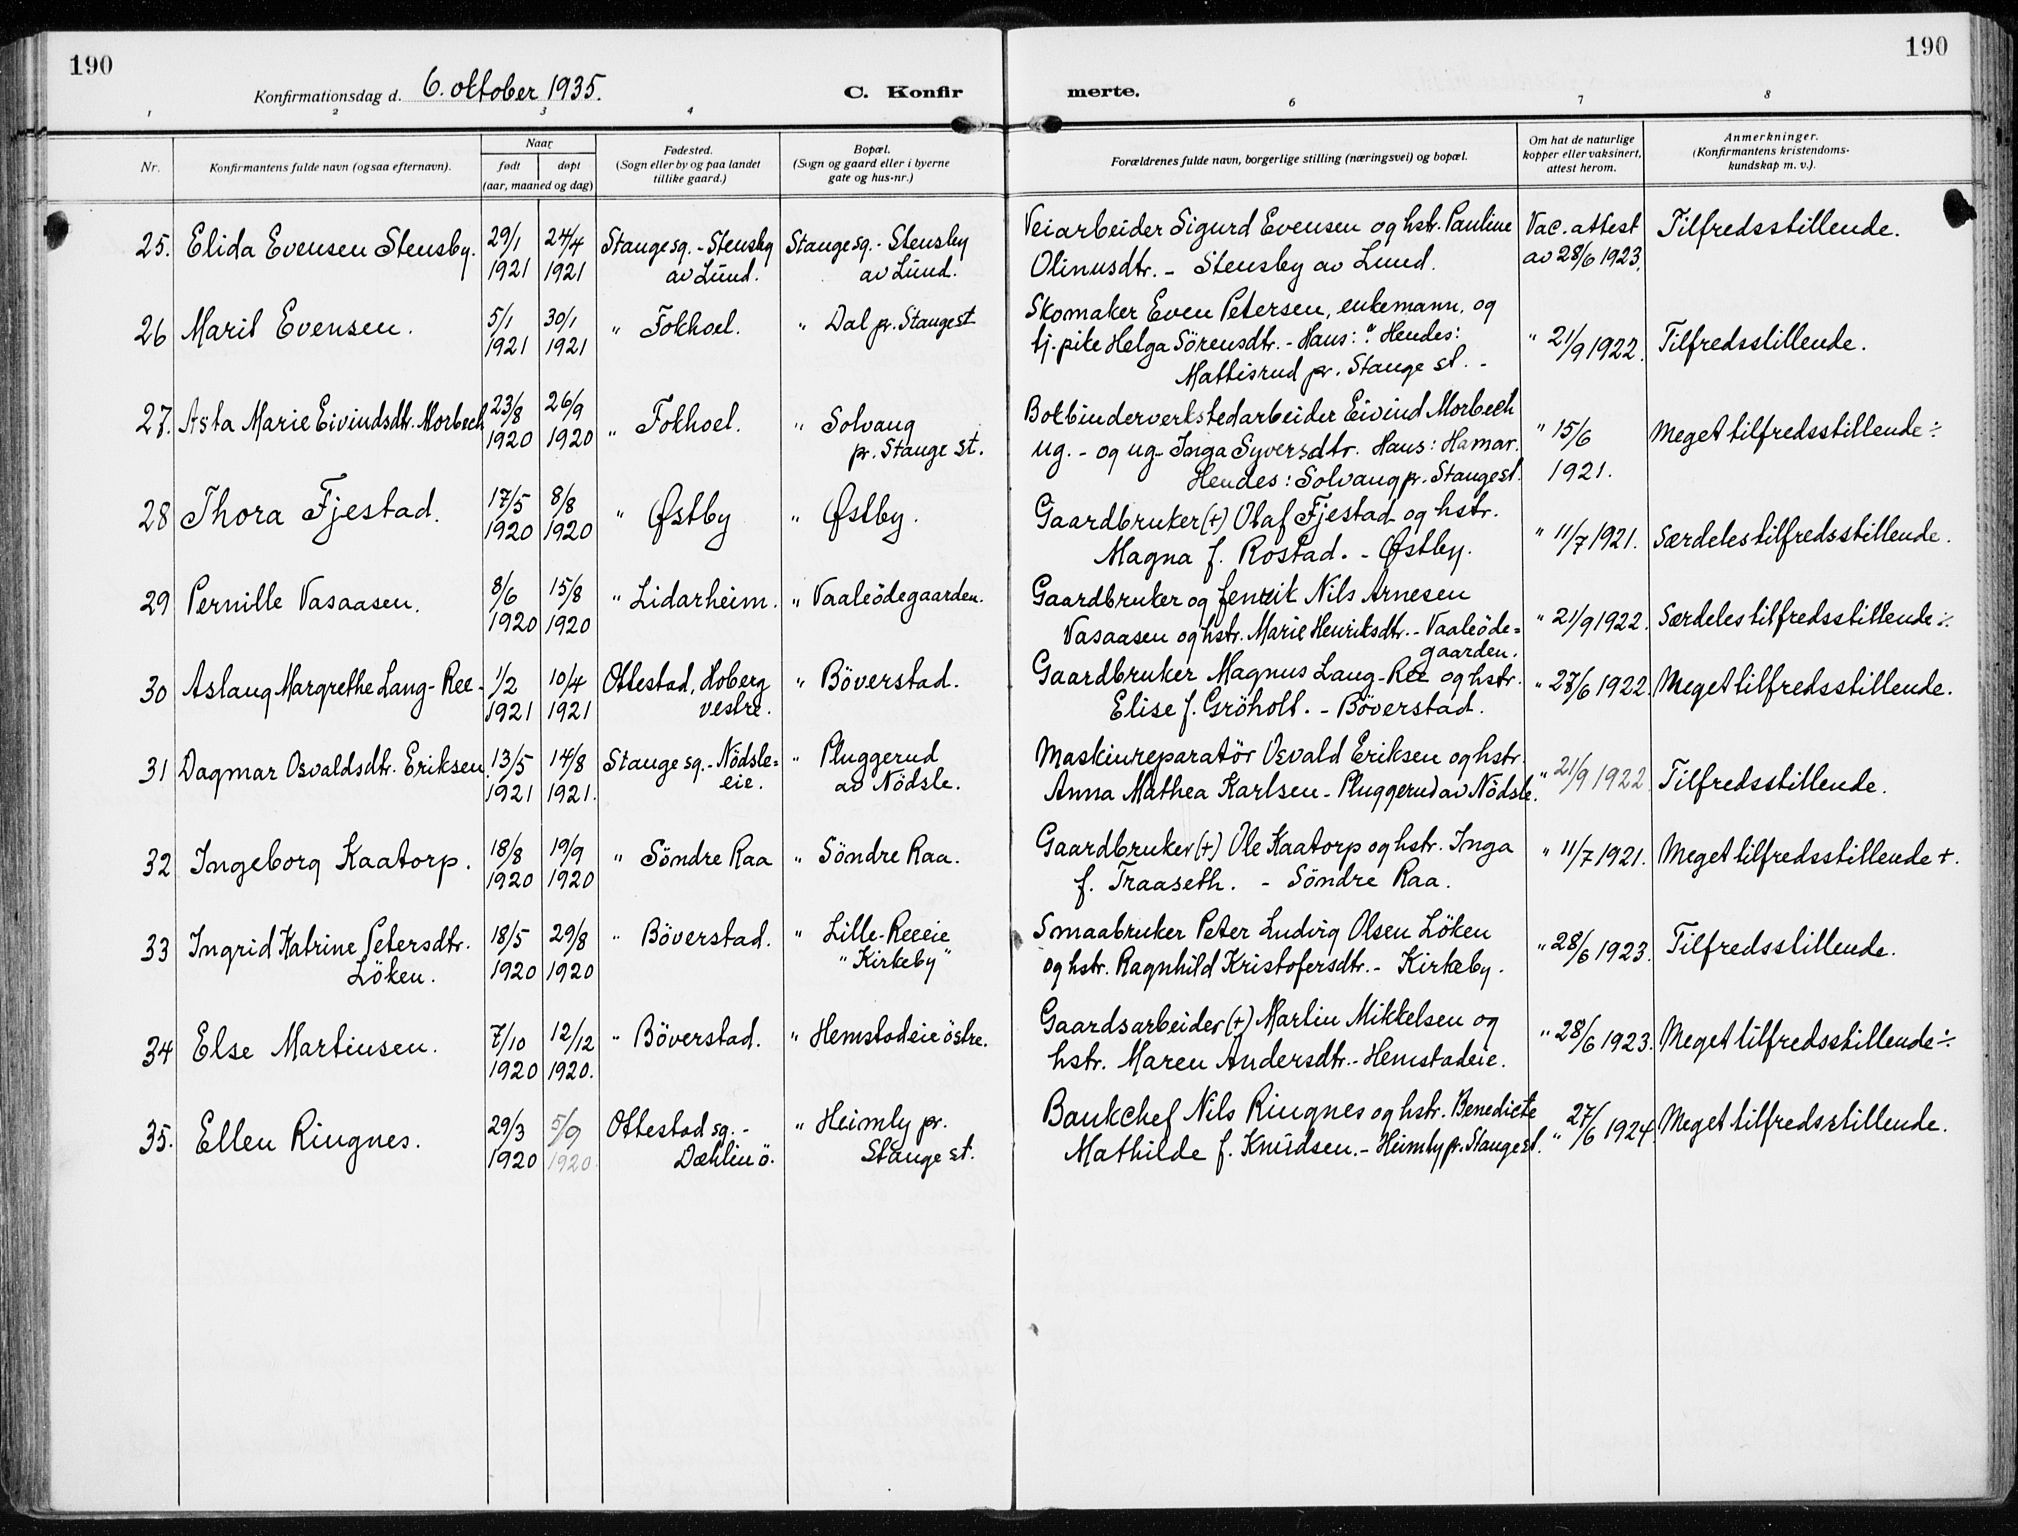 190
190
Konfirmationsdag d. 6. oktober 1935.
C. Konfir
merte.
1 2 3 4 6 7 8
Nr.
Konfirmantens fulde navn (ogsaa efternavn).
Naar
født
døpt
(aar, maaned og dag)
Fødested.
(Sogn eller by og paa landet
tillike gaard.)
Bopæl.
(Sogn og gaard eller i byerne
gate og hus-nr.)
Forældrenes fulde navn, borgerlige stilling (næringsvei) og bopæl.
Om hat de naturlige
kopper eller vaksinert,
attest herom.
Anmerkninger.
(Konfirmantens kristendoms-
kundskap m. v.).
25. Elida Evensen Stensby. 29/1 24/4 Stange sg. - Stensby Stange sg. - Stensby Veiarbeider Sigurd Evensen og hstr. Pauline Vac. attest Tilfredsstillende.
1921 1921 av Lund. av Lund. Olinusdtr. - Stensby av Lund. av 28/6 1923.
26 Marit Evensen. 5/1 30/1 " Fokhoel. " Dal pr. Stange st Skomaker Even Petersen, enkemann, og
1921 1921 tj. pike Helga Sörensdtr. - Hans: " Hendes: " 21/9 1922. Tilfredsstillende.
Mattisrud pr. Stange st. -
27. Asta Marie Eivindsdtr. Morbech 23/8 26/9 " Fokhoel. " Solvang Bokbinderverkstedarbeider Eivind Morbech " 15/6 Meget tilfredsstillende ÷
1920 1920 pr. Stange st. ug. - og ug. Inga Syversdtr. Hans: Hamar. 1921.
Hendes: Solvang pr. Stange st.
28 Thora Fjestad. 17/5 8/8 " Østby " Østby. Gaardbruker (+) Olaf Fjestad og hstr. " 11/7 1921. Særdeles tilfredsstillende.
1920 1920 Magna f. Rostad. - Østby.
29 Pernille Vasaasen. 8/6 15/8 " Lidarheim. " Vaaleödegaarden. Gaardbruker og fenrik Nils Arnesen " 21/9 1922. Særdeles tilfredsstillende ÷.
1920 1920 Vasaasen og hstr. Marie Henriksdtr. - Vaaleöde=
gaarden.
30 Aslaug Margrethe Lang-Ree - 1/2 10/4 Ottestad, Hoberg " Böverstad. Gaardbruker Magnus Lang-Ree og hstr. " 27/6 1922. Meget tilfredsstillende.
1921 1921 vestre. Elise f. Gröholt. - Böverstad.
31 Dagmar Osvaldsdtr. Eriksen. 13/5 14/8 Stange sg. - Nödsle= " Pluggerud Maskinreparatör Osvald Eriksen og hstr. " 21/9 1922 Tilfredsstillende.
1921 1921. eie. av Nödsle. Anna Mathea Karlsen - Pluggerud av Nödsle.
32 Ingeborg Kaatorp. 18/8 19/9 " Söndre Raa " Söndre Raa. Gaardbruker (+) Ole Kaatorp og hstr. Inga " 11/7 1921. Meget tilfredsstillende +.
1920 1920 f. Traaseth. - Söndre Raa.
33 Ingrid Katrine Petersdtr. 18/5 29/8 " Böverstad. " Lille-Reeeie Smaabruker Peter Ludvig Olsen Löken " 28/6 1923. Tilfredsstillende.
Löken. 1920 1920 "Kirkeby" og hstr. Ragnhild Kristofersdtr. - Kirkeby.
34 Else Martinsen. 7/10 12/12 " Böverstad. " Hemstadeie östre. Gaardsarbeider (+) Martin Mikkelsen og " 28/6 1923. Meget tilfredsstillende ÷
1920 1920. hstr. Maren Andersdtr. - Hemstadeie.
35. Ellen Ringnes. 29/3 5/9 Ottestad sg. - " Heimly pr. Bankchef Nils Ringnes og hstr. Benedicte " 27/6 1924. Meget tilfredsstillende.
1920 1920. Dæhlin ö. Stange st. Mathilde f. Knudsen. - Heimly pr. Stange st.